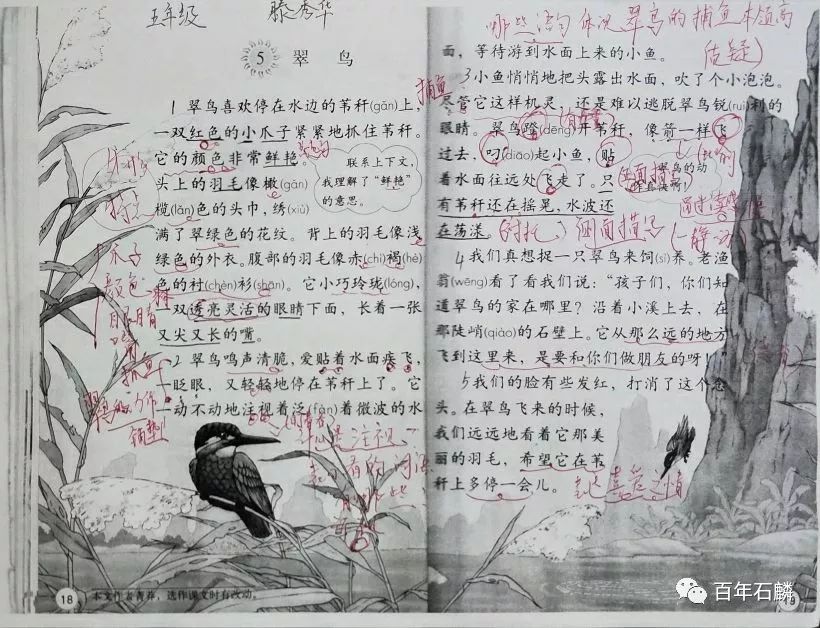 五年级 滕秀华
5 翠鸟
1 翠鸟喜欢停在水边的苇秆(gǎn)上，
一双红色的小爪子紧紧地抓住苇秆。
它的颜色非常鲜艳。
头上的羽毛像橄(gǎn)
榄(lǎn)色的头巾，绣(xiù)
满了翠绿色的花纹。背上的羽毛像浅
绿色的外衣。腹部的羽毛像赤(chì)褐(hè)
色的衬(chèn)衫(shān)。它小巧玲珑(lóng)，
一双透亮灵活的眼睛下面，长着一张
又尖又长的嘴。
联系上下文，
我理解了“鲜艳”
的意思。
2 翠鸟鸣声清脆，爱贴着水面疾飞，
一眨眼，又轻轻地停在苇秆上了。它
一动不动地注视着泛(fàn)着微波的水
特点
爪子
颜色
眼睛
嘴
捕鱼
铺垫
18
本文作者菁莽，选作课文时有改动。
哪些语句体现翠鸟的捕鱼本领高
(质疑)
面，等待游到水面上来的小鱼。
3 小鱼悄悄地把头露出水面，吹了个小泡泡。
捕鱼
尽管它这样机灵，还是难以逃脱翠鸟锐(ruì)利的
眼睛。翠鸟蹬(dēng)开苇秆，像箭一样飞
过去，叼(diāo)起小鱼，贴
着水面往远处飞走了。只
有苇秆还在摇晃，水波还
在荡漾。
翠鸟的动
作真快啊！
(衬托) 侧面描写 (静 动)
4 我们真想捉一只翠鸟来饲(sì)养。老渔
翁(wēng)看了看我们说：“孩子们，你们知
道翠鸟的家在哪里？沿着小溪上去，在
那陡峭(qiào)的石壁上。它从那么远的地方
飞到这里来，是要和你们做朋友的呀！”
5 我们的脸有些发红，打消了这个念
头。在翠鸟飞来的时候，
我们远远地看着它那美
丽的羽毛，希望它在苇
秆上多停一会儿。
喜爱之情
19
百年石麟